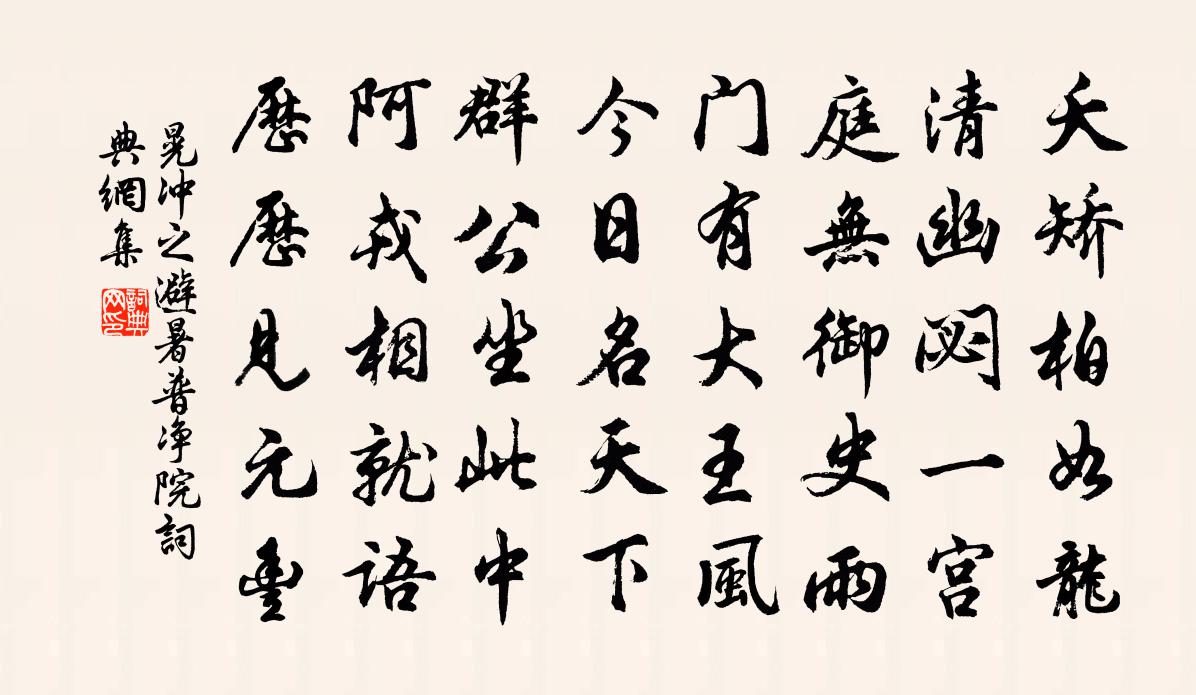 夭矯柏如龍
清幽閟一宮
庭無御史雨
门有大王風
今日名天下
群公坐此中
阿戎相就語
歷歷見元豊
晁冲之避暑普净院詞
典網集
詞典
网印